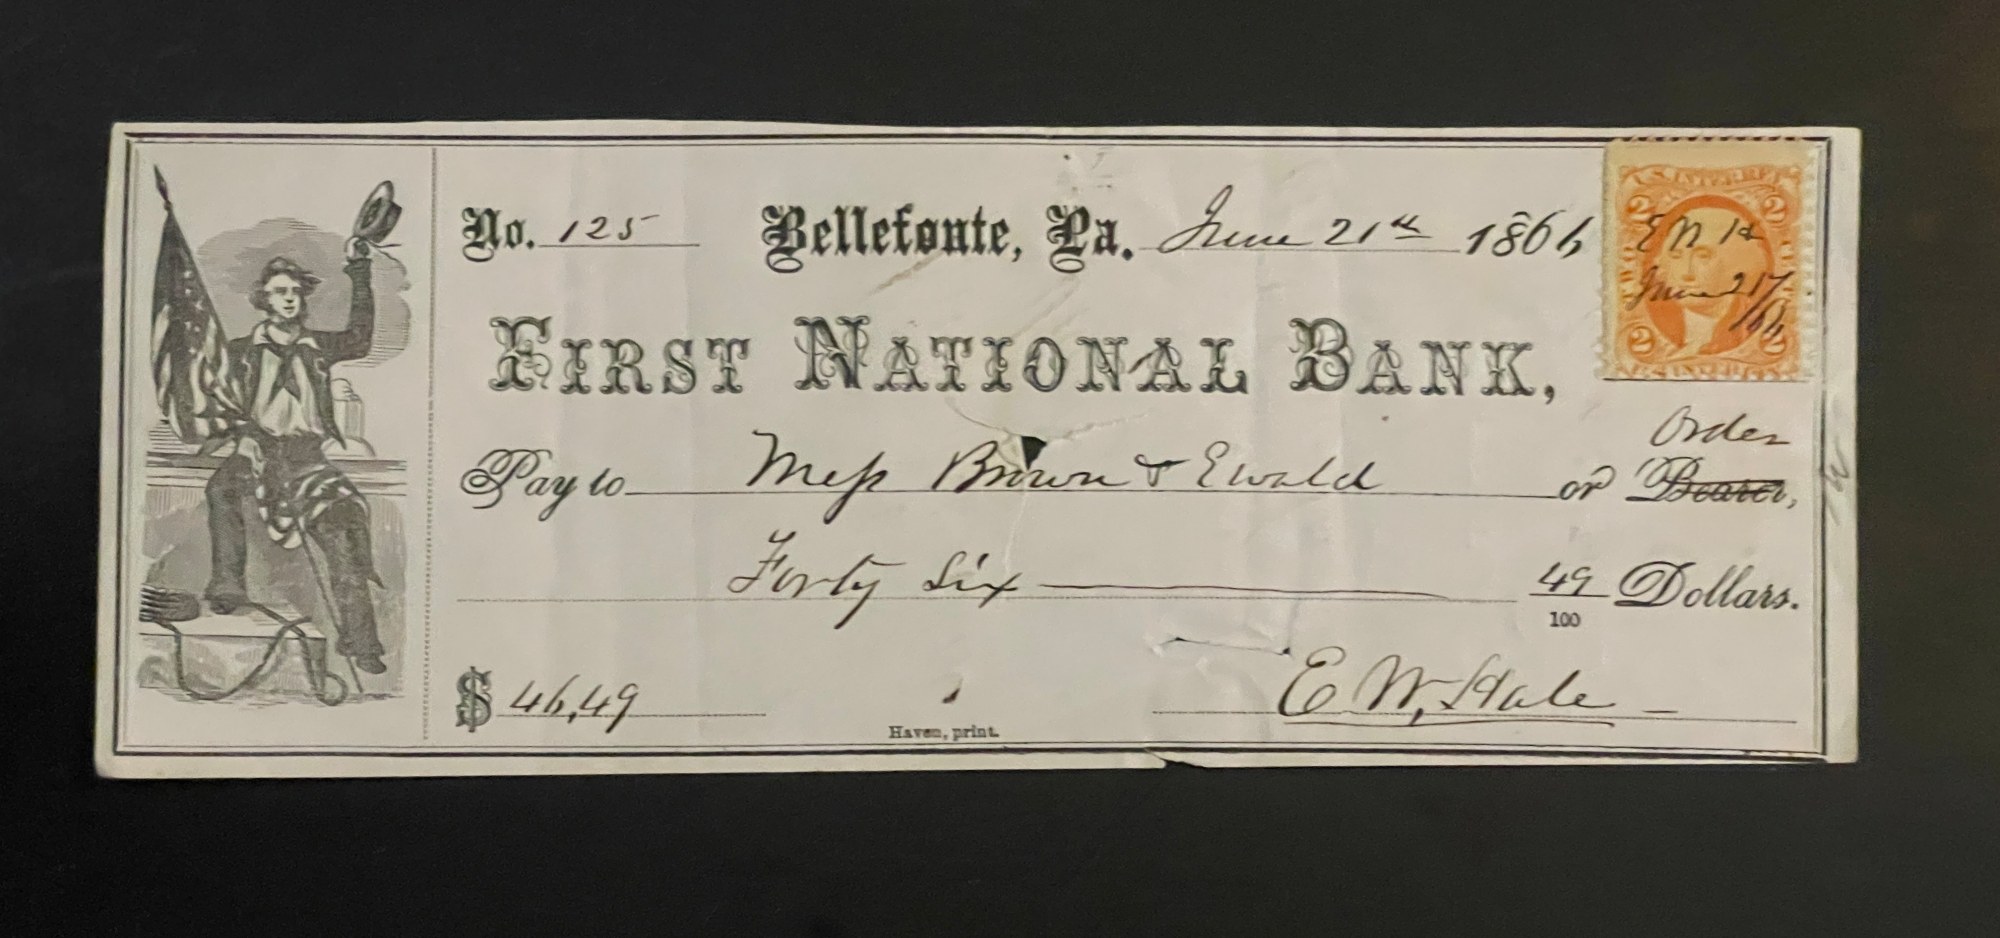 No. 125 Bellefonte, Pa. June 21st 1866
FIRST NATIONAL BANK,
Order
Pay to Mess Brown & Ewald or Bearer,
Forty Six 49/100 Dollars.
$ 46,49
E W, Hale
Haven, print.
U.S. INTER. REV.
2 2
E W H
June 21
/66
2 2